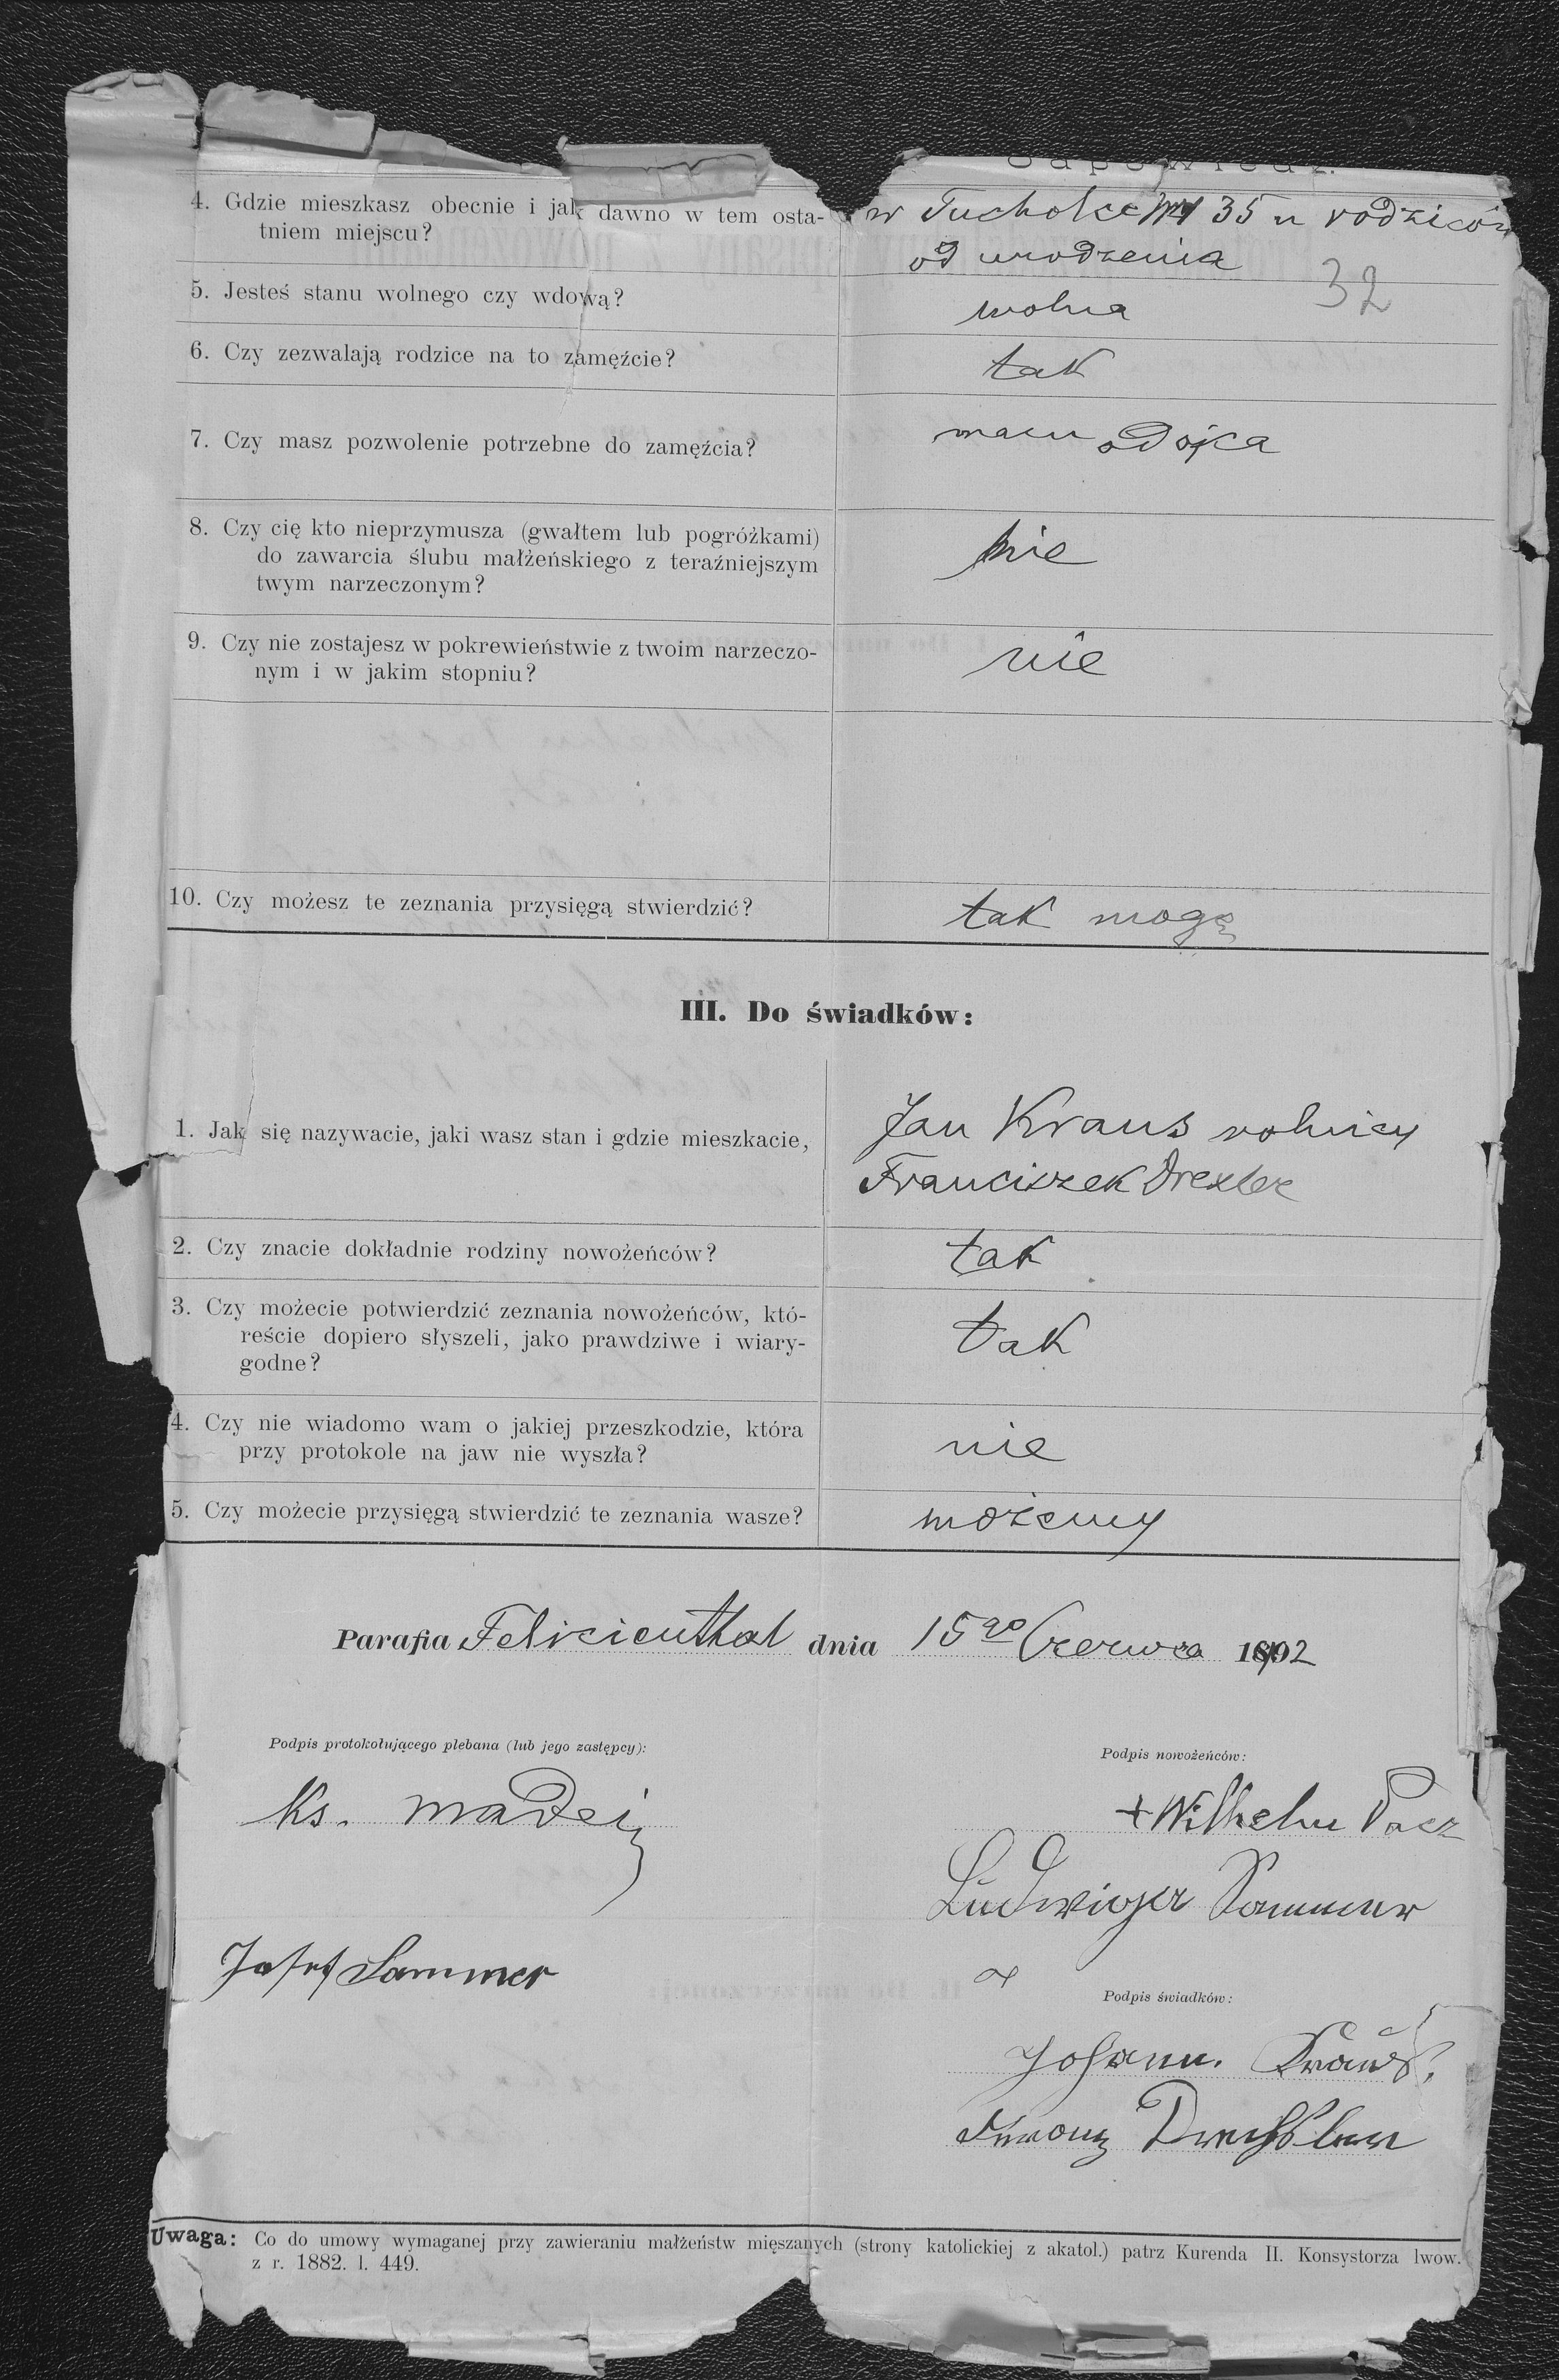 Odpowiedź.
4. Gdzie mieszkasz obecnie i jak dawno w tem osta-
tniem miejscu?
w Tucholce 35 u rodziców
od urodzenia
32
5. Jesteś stanu wolnego czy wdową?
wolna
6. Czy zezwalają rodzice na to zamęźcie?
tak
7. Czy masz pozwolenie potrzebne do zamęźcia?
mam od ojca
8. Czy cię kto nieprzymusza (gwałtem lub pogróżkami)
do zawarcia ślubu małżeńskiego z teraźniejszym
twym narzeczonym?
nie
9. Czy nie zostajesz w pokrewieństwie z twoim narzeczo-
nym i w jakim stopniu?
nie
10. Czy możesz te zeznania przysięgą stwierdzić?
tak mogę
III. Do świadków:
1. Jak się nazywacie, jaki wasz stan i gdzie mieszkacie,
Jan Kraus rolnicy
Franciszek Drexler
2. Czy znacie dokładnie rodziny nowożeńców?
tak
3. Czy możecie potwierdzić zeznania nowożeńców, któ-
reście dopiero słyszeli, jako prawdziwe i wiary-
godne?
tak
4. Czy nie wiadomo wam o jakiej przeszkodzie, która
przy protokole na jaw nie wyszła?
nie
5. Czy możecie przysięgą stwierdzić te zeznania wasze?
możemy
Parafia Felicienthal dnia 15go Czerwca 1902
Podpis protokołującego plebana (lub jego zastępcy):
Podpis nowożeńców:
Ks. Madej
+ Wilhelm Pacz
Ludwiga Sommer
Josef Sommer
Podpis świadków:
Johann. Kraus.
Franz Drechsler
Uwaga: Co do umowy wymaganej przy zawieraniu małżeństw mięszanych (strony katolickiej z akatol.) patrz Kurenda II. Konsystorza lwow.
z r. 1882. l. 449.